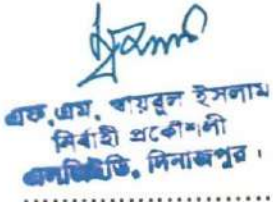 এফ, এম, খায়রুল ইসলাম
নির্বাহী প্রকৌশলী
এলজিইডি, দিনাজপুর।